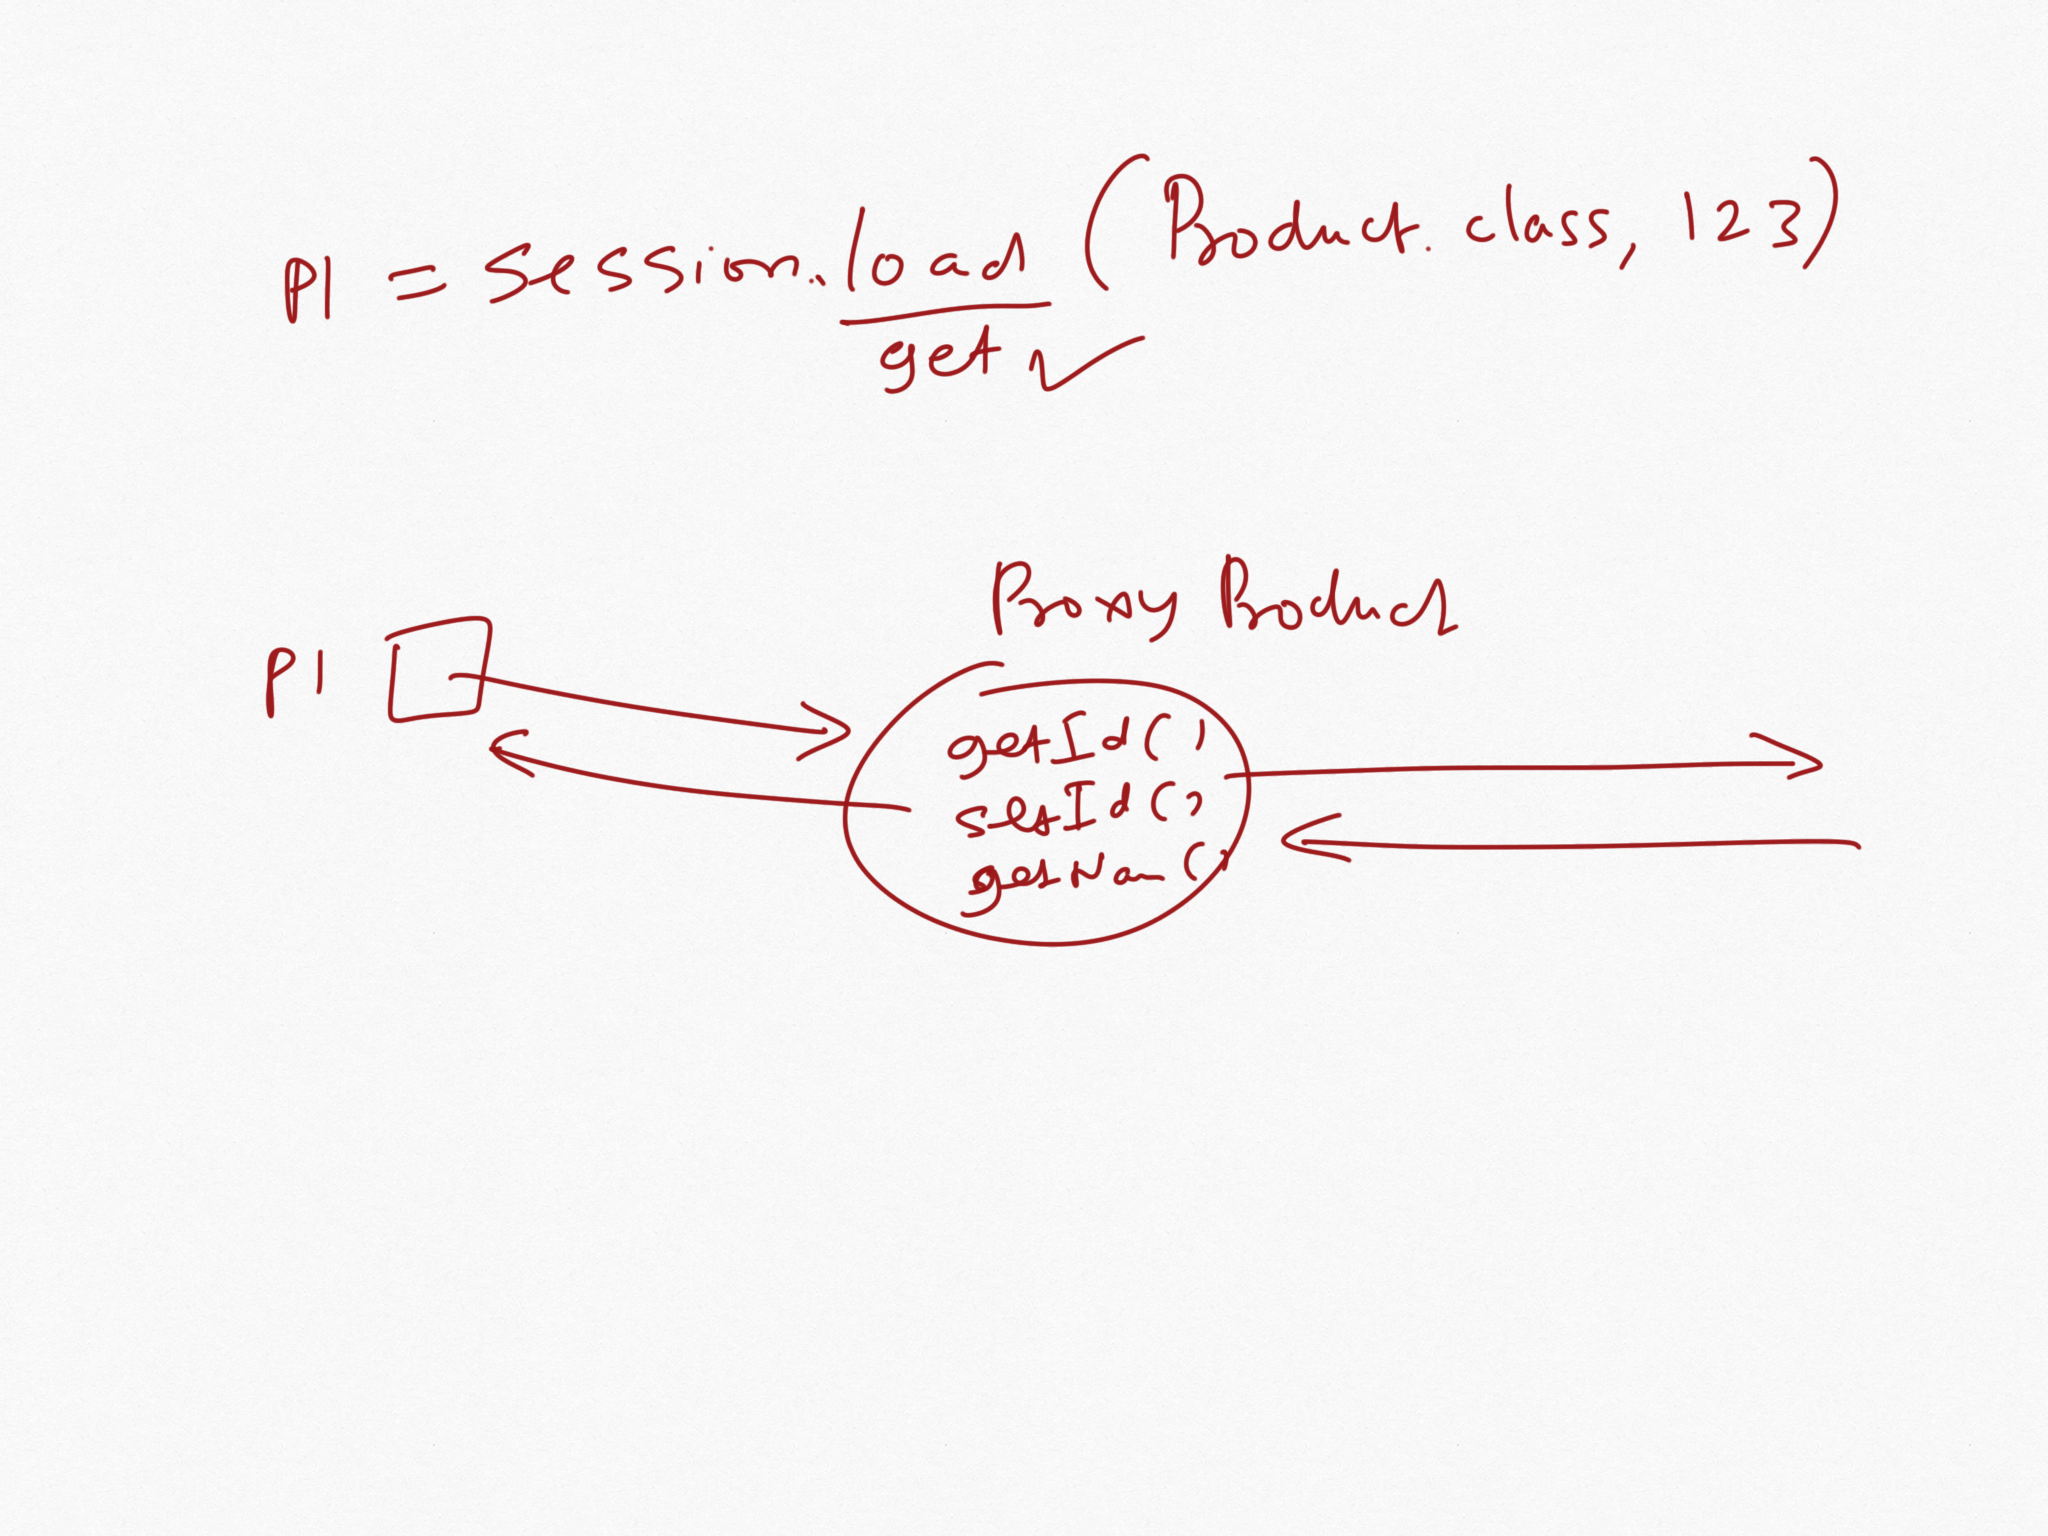 p1 = session.load (Product.class, 123)
get
Proxy Product
p1
getId()
setId()
getNam()